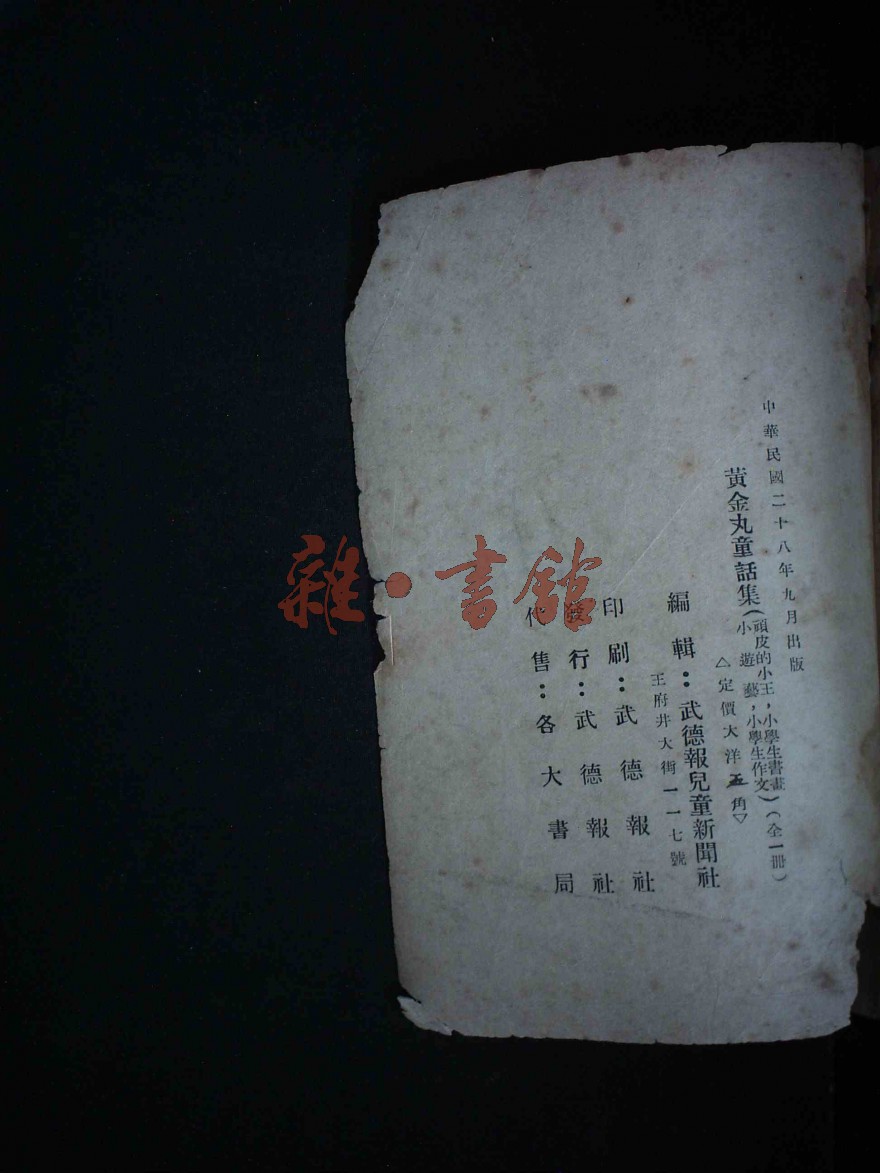 中華民國二十八年九月出版
黃金丸童話集(頑皮的小王,小學生書畫
小遊藝,小學生作文)(全一冊)
△定價大洋五角▽
編輯:武德報兒童新聞社
王府井大街一一七號
印刷:武德報社
發行:武德報社
代售:各大書局
雜·書館